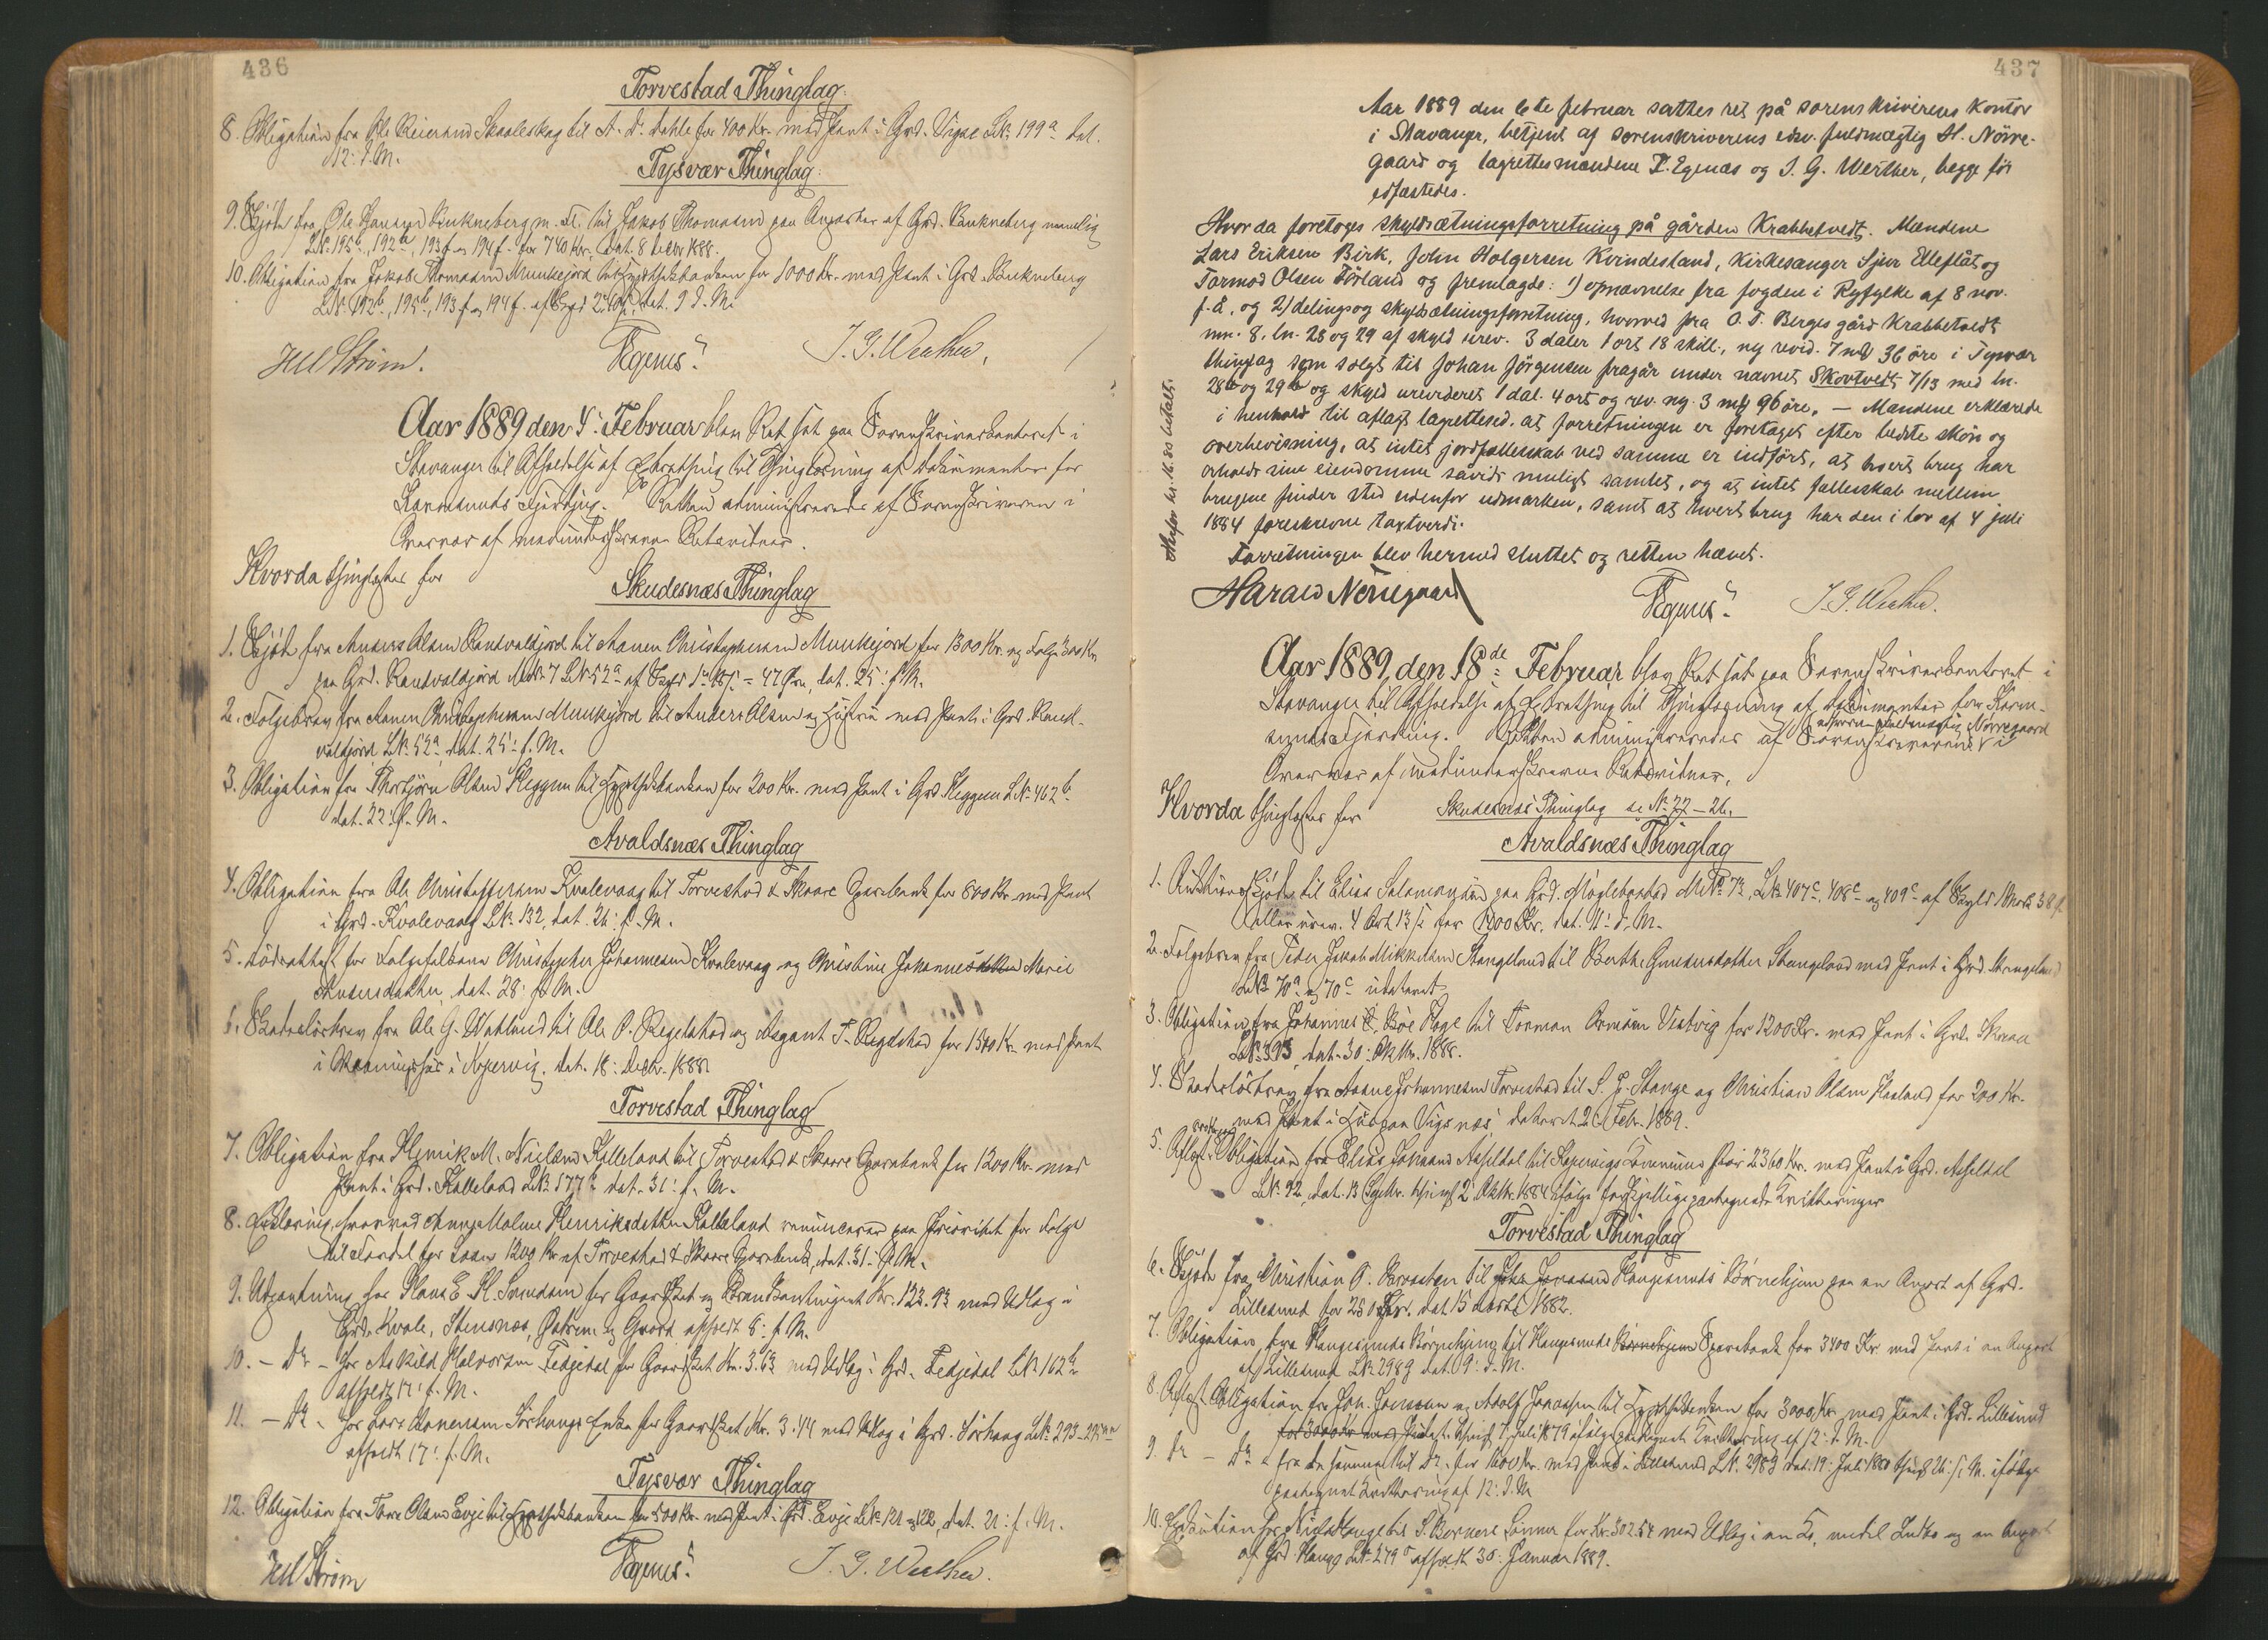 436
Torvestad Thinglag.
8. Obligation fra Ole Reiersen Skaaleskog til A. D. Dahle for 400 Kr. med Pant i Grd. Vigse LNr. 199a dat.
12: d. M.
Tysvær Thinglag.
9. Skjöde fra Ole Jansen Bukneberg m. Fl. til Jakob Thomasen paa Anparter af Grd. Bukneberg nemlig
LNr. 195b, 192b, 193f og 194f for 740 Kr., dat. 8 Decbr 1888.
10. Obligation fra Jakob Thomasen Munkejord til Hypothekbanken for 1000 Kr. med Pant i Grd. Bukneberg
LNr. 192b, 195b, 193f og 194f. af Skyld dat. 9 d. M.
Strøm. Egenes. J. G. Werther.
Aar 1889 den 4: Februar blev Ret sat paa Sorenskriverkontoret i
Stavanger til Afholdelse af Extrathing til Thinglæsning af Dokumenter for
Karmsunds Fjerding. Retten administreredes af Sorenskriveren i
Overvær af medunderskrevne Retsvidner.
Hvorda thinglæstes for
Skudesnæs Thinglag
1. Skjöde fra Anders Olsen Sandvaldjord til Aanen Christophersen Munkejord for 1300 Kr. og Folge 300 Kr.
paa Grd. Sandvaldjord MNr. 7 LNr. 52a af Skyld = 47 Øre, dat. 25: f. M.
2. Folgebrev fra Aanen Christophersen Munkejord til Anders Olsen og Hustru med Pant i Grd. Sand-
valdjord, LNr. 52a, dat. 25: f. M.
3. Obligation fra Thorbjörn Olsen Heggem til Hypothekbanken for 200 Kr. med Pant i Grd. Heggem LNr. 462b
dat. 22: f. M.
Avaldsnæs Thinglag
4. Obligation fra Ole Christoffersen Kvalevaag til Torvestad & Skaare Sparebank for 800 Kr. med Pant
i Grd. Kvalevaag LNr. 132, dat. 26: f. M.
5. Dödsattest for Folgefolkene Christopher Johannesen Kvalevaag og Christine Johannesdatter Marie
Andersdatter, dat. 28: f. M.
6. Skadeslösbrev fra Ole G. Vatlund til Ole P. Regelstad og Aagant T. Regelstad for 1300 Kr. med Pant
i Vaaningshus i Kopervig. dat. 18: Decbr. 1888.
Torvestad Thinglag
7. Obligation fra Henrik M. Nielsen Kalleland til Torvestad & Skaare Sparebank for 1200 Kr. med
Pant i Grd. Kalleland LNr. 177a dat. 31: f. M.
8. Erklæring, hvorved Anne Malene Henriksdatter Kalleland renuncerer paa Prioritet for Folge
til Fordel for Laan 1200 Kr. af Torvestad & Skaare Sparebank, dat. 31: f. M.
9. Udpantning hos Hans E. H. Svendsen for Gaardskat og Brandkontingent Kr. 122.93 med Udlæg i
Grd. Kvale, Stensnæs, og Gaard afholdt 8: f. M.
10. - Do - hos Askild Halvorsen Fedjedal for Gaardskat Kr. 3.63 med Udlæg i Grd. Fedjedal LNr. 162b
afholdt 17: f. M.
11. - Do - hos Lars Aanensen Sörhaugs Enke for Gaardskat Kr. 3.44 med Udlæg i Grd. Sörhaug LNr. 293-295
afholdt 17: f. M.
Tysvær Thinglag
12. Obligation fra Thore Olsen Evje til Hypothekbanken for 500 Kr. med Pant i Grd. Evje LNr. 121 og 122, dat. 21: f. M.
Strøm Egenes. J. G. Werther.
437
Aar 1889 den 6te februar sattes ret på sorenskriverens kontor
i Stavanger, betjent af sorenskriverens edsv. fuldmægtig H. Nörre-
gaard og lagrettesmændene T. Egenæs og J. G. Werther, begge för
edfæstedes.
Hvorda foretoges skyldsætningsforretning på gården Krabbetvedt. Mændene
Lars Eriksen Birk, John Holgersen Kvindesland, kirkesanger Sjur Elleflåt og
Tormod Olsen Förland og fremlagde: 1) opnævnelse fra fogden i Ryfylke af 8 nov.
f. å. og 2) delings og skyldsætningsforretning, hvorved fra O. T. Berges gård Krabbetvedt
mn. 8, ln. 28 og 29 af skyld urev. 3 daler 1 ort 18 skill., ny revid. 7 mk 36 öre i Tysvær
thinglag som solgt til Johan Jörgensen fragår under navnet Skovtvedt 7/13 med ln.
28b og 29b og skyld urevideret 1 dal. 4 ort og rev. ny. 3 mk 96 öre. – Mændene erklærede
i henhold til aflagt lagrettesed. at forretningen er foretaget efter bedste skön og
overbevisning, at intet jordfællesskab ved samme er indfört, at hvert brug har
erholdt sine eiendomme såvidt muligt samlet, og at intet fællesskab mellem
brugene finder sted udenfor udmarken, samt at hvert brug har den i lov af 4 juli
1884 foreskrevne taxtværdi.
Forretningen blev hermed sluttet og retten hævet.
kr. 16.80 betalt.
Harald Nörregaard Egenes. J. G. Werther.
Aar 1889, den 18de Februar blev Ret sat paa Sorenskriverkontoret i
Stavanger til Afholdelse af Extrathing til Thinglæsning af Dokumenter for Karm-
sunds Fjerding. Retten administreredes af Sorenskriverens edsvorne Fuldmægtig Nörregaard i
Overvær af medunderskrevne Retsvidner.
Hvorda thinglæstes for Skudesnæs Thinglag se No 22 – 26.
Avaldsnæs Thinglag
1. Auktionsskjöde til Elias Salamonsen paa Grd. Möglebostad MNo 72 LNr. 407c, 408c og 409c af Skyld 1 Mark 38 f.
eller urev. 4 Ort 13 ß for 1400 Kr. dat. 11: d. M.
2. Folgebrev fra Peder Jakob Mikkelsen Stangeland til Berthe Gundersdatter Stangeland med Pant i Grd. Stangeland
LNr. 70a og 70c udateret
3. Obligation fra Johannes Böe Hage til Tormon Ormsen Vestvig for 1200 Kr. med Pant i Grd. Skeie
LNr. 393, dat. 30: Oktbr. 1888.
4. Skadeslösbrev fra Aanne Johannesen Torvestad til S. J. Stange og Christian Olsen Hasland for 200 Kr.
med Pant i Hus paa Vigsnæs, dateret 2 Febr. 1889.
5. Aflæst Obligation fra Elias Johnsen Asheldal til Kopervigs Kommune stor 2360 Kr. med Pant i Grd. Asheldal
LNr. 92, dat. 13 Septbr. thinglæst 2 Oktbr. 1884 ifölge forskjellige paategnede Kvitteringer
Torvestad Thinglag
6. Skjöde fra Christian O. Sörvesten til Haugesunds Börnehjem paa en Anpart af Grd.
Lillesund for 280 Kr. dat. 15 Martz 1882.
7. Obligation fra Haugesunds Börnehjem til Haugesunds Börnehjems Sparebank for 3400 Kr. med Pant i en Anpart
af Lillesund LNr. 298g dat. 9: d. M.
8. Aflæst Obligation fra Joh. Jonassen og Adolf Jonassen til Hypothekbanken for 3000 Kr. med Pant i Grd. Lillesund
thinglæst 7 Juli 1879 ifölge paategnet Kvittering af 12: d. M.
9. Do - Do - fra de samme til Do. for 1600 Kr. med Pant i Lillesund LNr. 298g dat. 19: Juli 1880 thinglæst 26: s. M. ifölge
paategnet Kvittering af 12: d. M.
10. Exekution hos Nils Hauge til S. Berners Sönner for Kr. 302.54 med Udlæg i en Ko, endel Indbo og en Anpart
af Grd. Hauge LNr. 279 afholdt 30: Januar 1889.